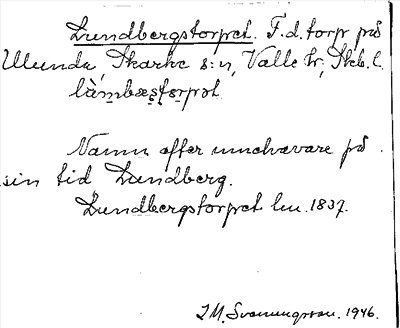 Lundbergstorpet. F.d. torp på
Ulunda, Skarke s:n, Valle hr, Skb.l.
làmbæstorpət
Namn efter innehavare på
sin tid Lundberg.
Lundbergstorpet hu. 1837.
I.M. Svenungsson. 1946.